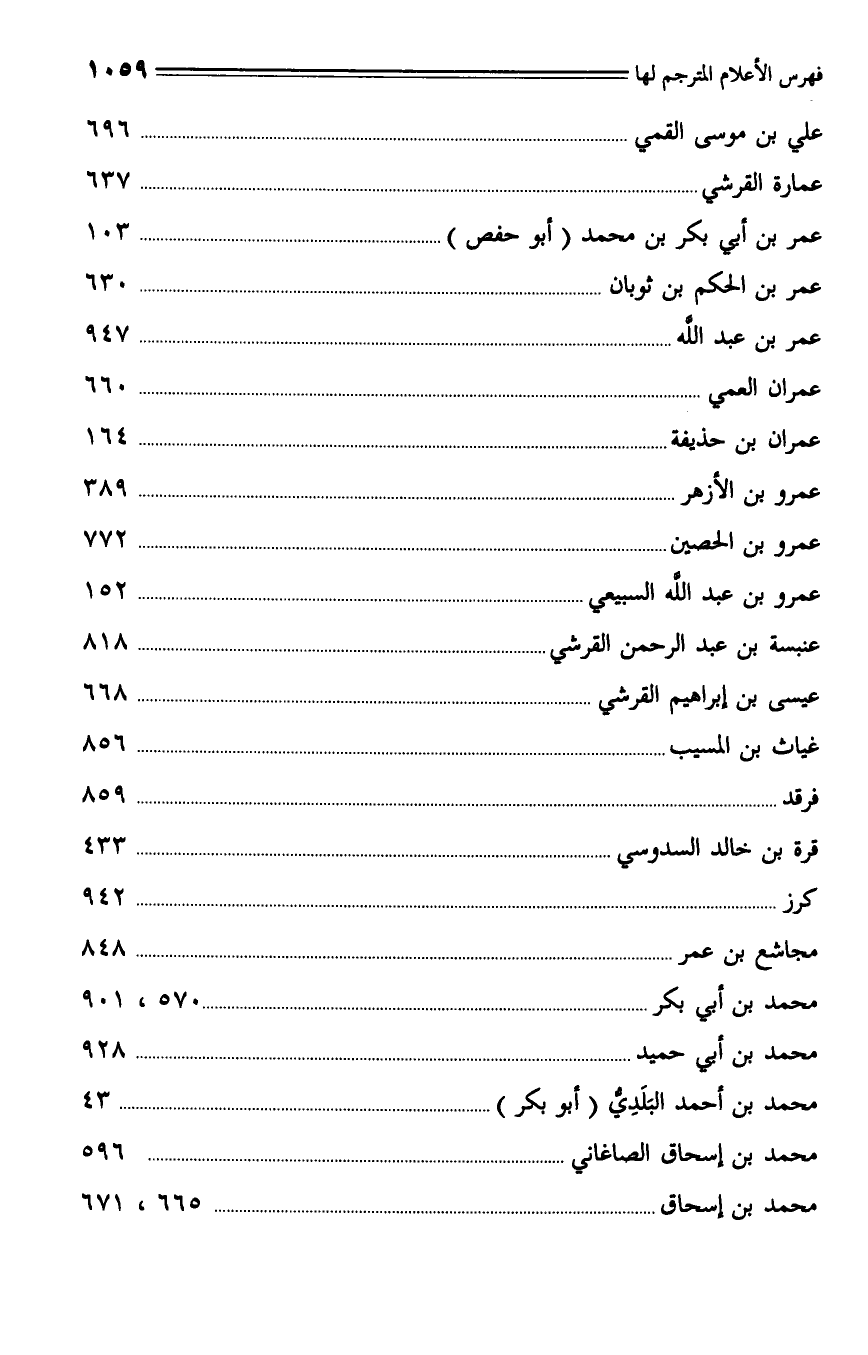 فهرس الأعلام المترجم لها ١٠٥٩
علي بن موسى القمي ٦٩٦
عمارة القرشي ٦٣٧
عمر بن أبي بكر بن محمد ( أبو حفص ) ١٠٣
عمر بن الحكم بن ثوبان ٦٣٠
عمر بن عبد اللَّه ٩٤٧
عمران العمي ٦٦٠
عمران بن حذيفة ١٦٤
عمرو بن الأزهر ٣٨٩
عمرو بن الحصين ٧٧٢
عمرو بن عبد اللَّه السبيعي ١٥٢
عنبسة بن عبد الرحمن القرشي ٨١٨
عيسى بن إبراهيم القرشي ٦٦٨
غياث بن المسيب ٨٥٦
فرقد ٨٥٩
قرة بن خالد السدوسي ٤٣٣
كرز ٩٤٢
مجاشع بن عمر ٨٤٨
محمد بن أبي بكر ٥٧٠ ، ٩٠١
محمد بن أبي حميد ٩٢٨
محمد بن أحمد البَلَدِيُّ ( أبو بكر ) ٤٣
محمد بن إسحاق الصاغاني ٥٩٦
محمد بن إسحاق ٦٦٥ ، ٦٧١